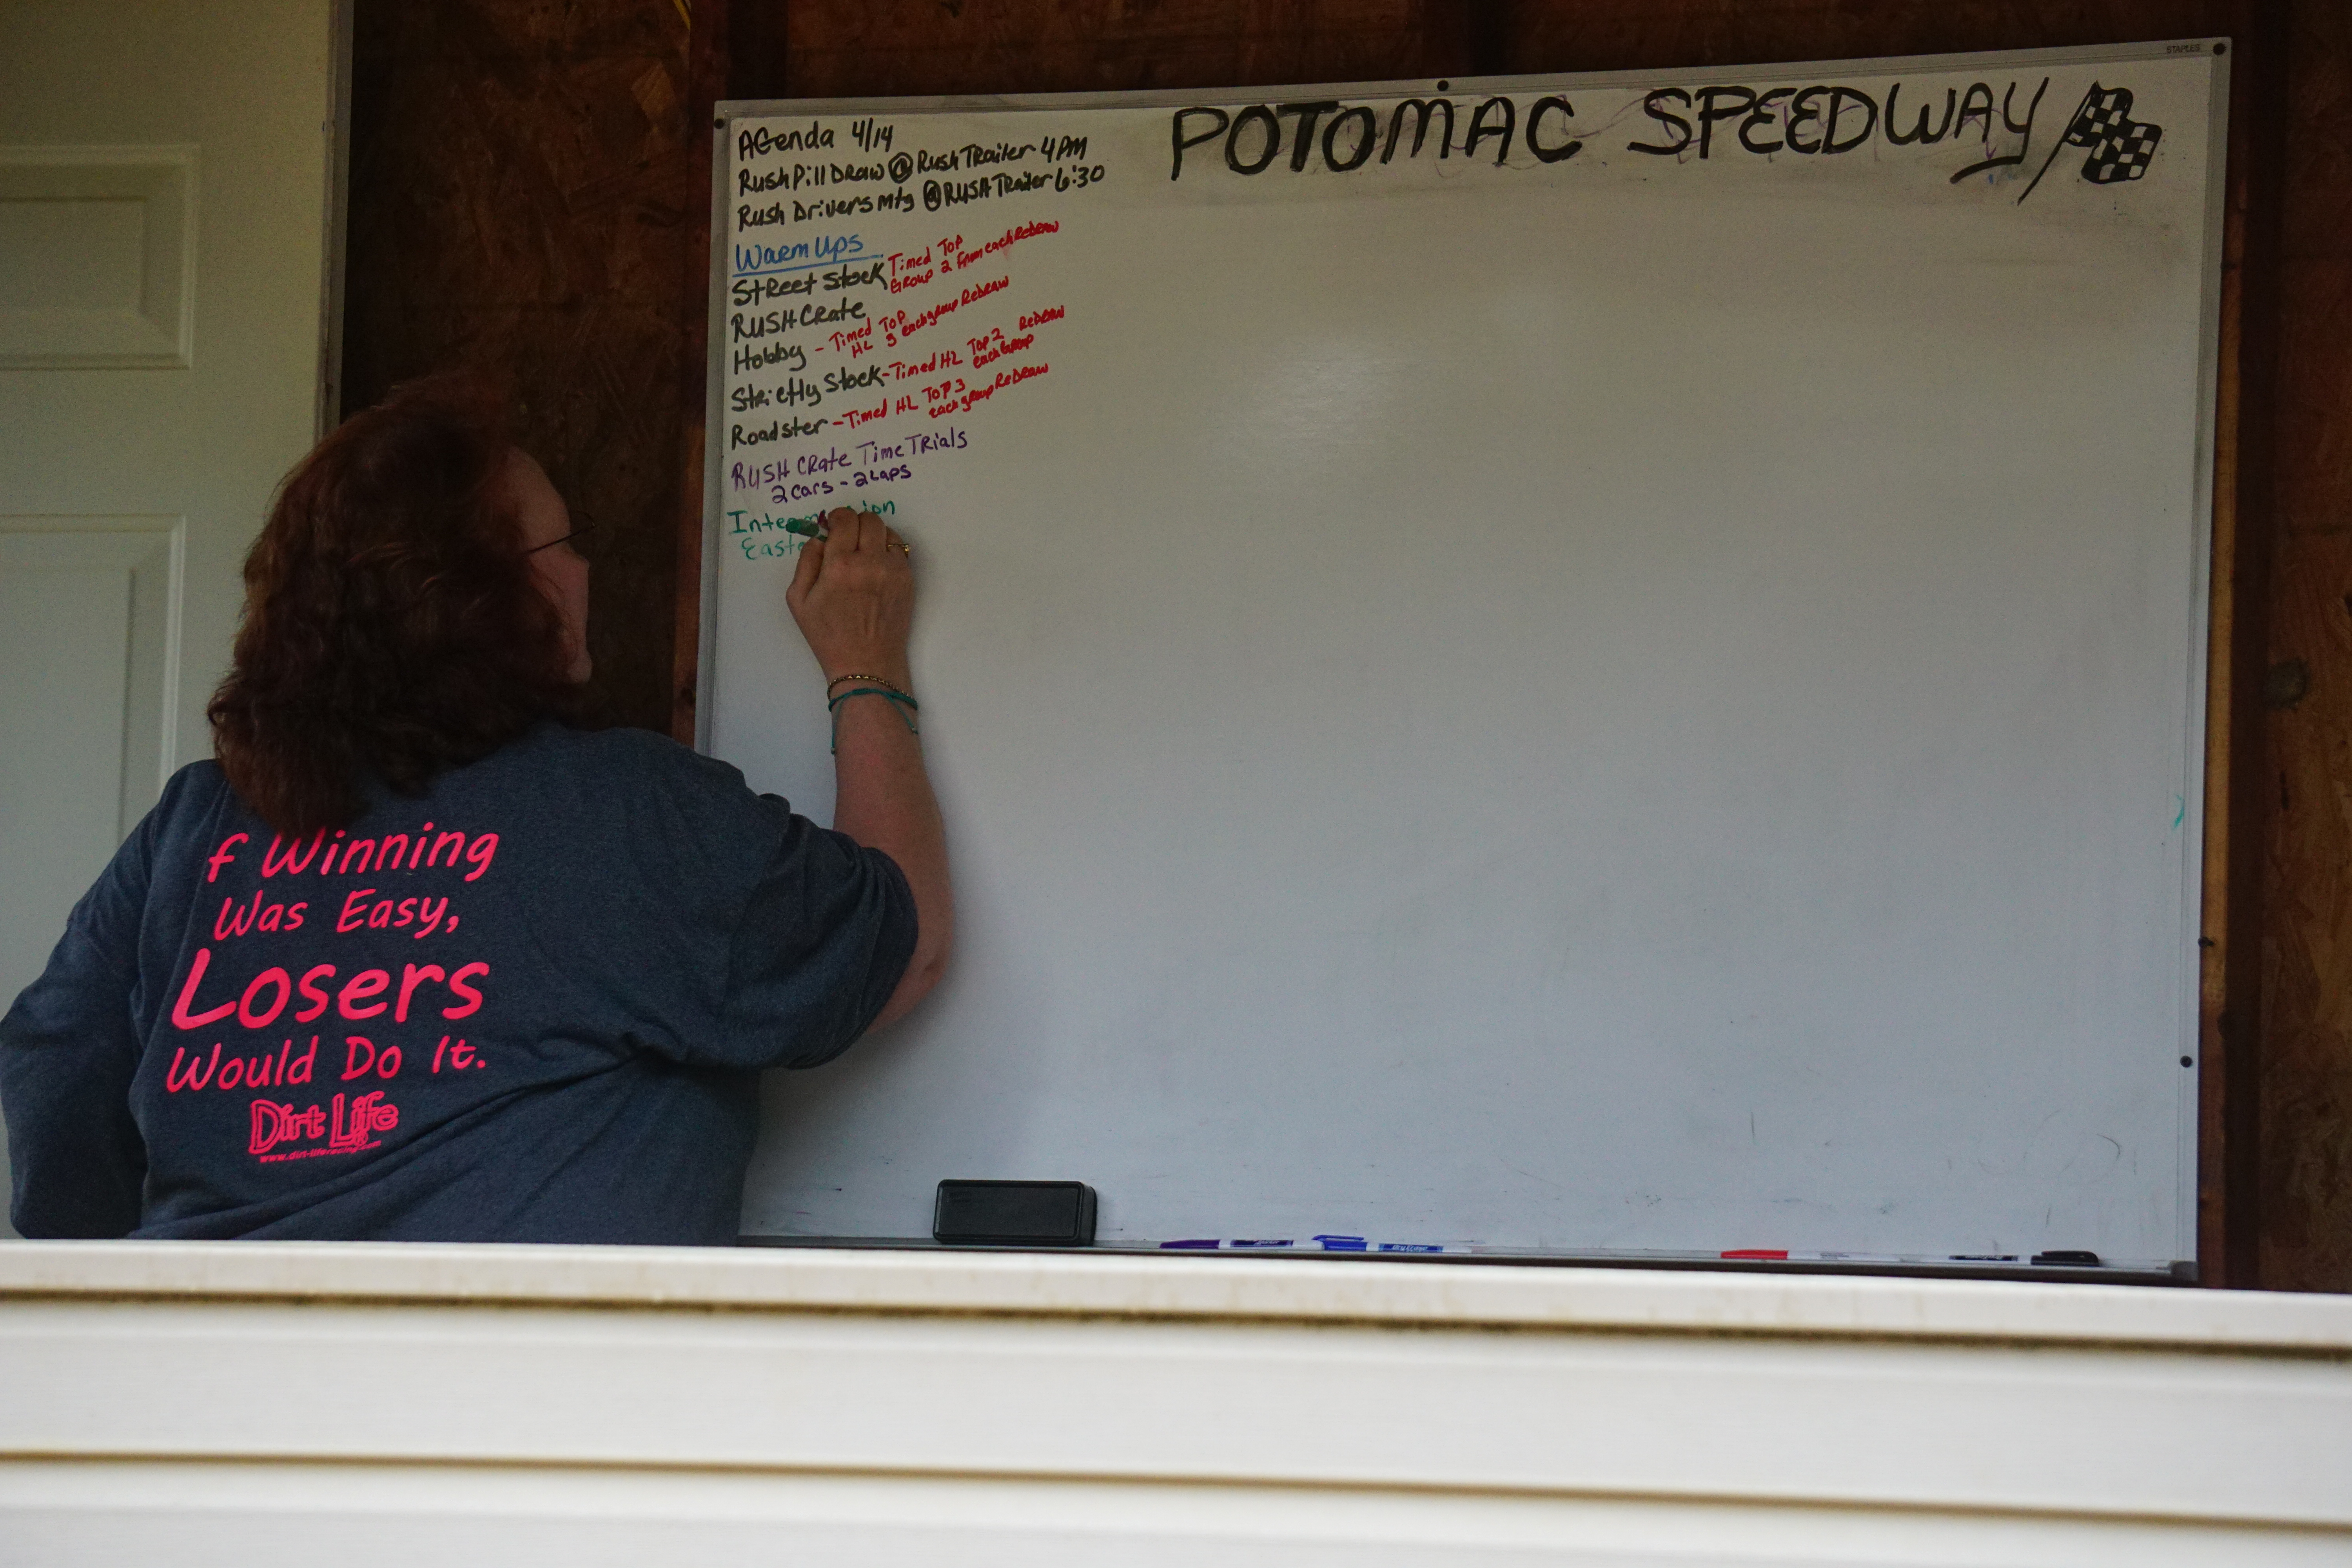 STAPLES
POTOMAC SPEEDWAY
AGenda 4/14
Rush Pill Draw @ Rush TRailer 4 PM
Rush Drivers mtg @ RUSH TRailer 6:30
Warm Ups
StReet Stock Timed Top
Group 2 from each ReDraw
RUSH CRate
Hobby - Timed Top
HL 3 each group ReDraw
Strictly Stock - Timed HL Top 2 ReDraw
each Group
Roadster - Timed HL Top 3
each group ReDraw
RUSH CRate Time TRials
2 cars - 2 Laps
f Winning
Was Easy,
Losers
Would Do It.
Dirt Life